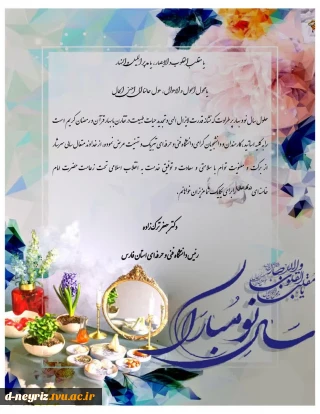 یا مقلب القلوب والابصار، یا مدبر اللیل والنهار
یا محول الحول والاحوال، حول حالنا الی احسن الحال
حلول سال نو و بهار پرطراوت که نشانه قدرت لایزال الهی و تجدید حیات طبیعت و تقارن با بهار قرآن و رمضان کریم است
را به کلیه اساتید، کارمندان و دانشجویان گرامی دانشگاه فنی و حرفه ای تبریک و تهنیت عرض نموده و از خداوند متعال سالی سرشار
از برکت و معنویت توام با سلامتی و سعادت و توفیق خدمت به انقلاب اسلامی تحت زعامت حضرت امام
خامنه ای برای یکایک شما عزیزان خواهانم.
دکتر صفر ترک زاده
رئیس دانشگاه فنی و حرفه ای استان فارس
سال نو مبارک
d-neyriz.tvu.ac.ir